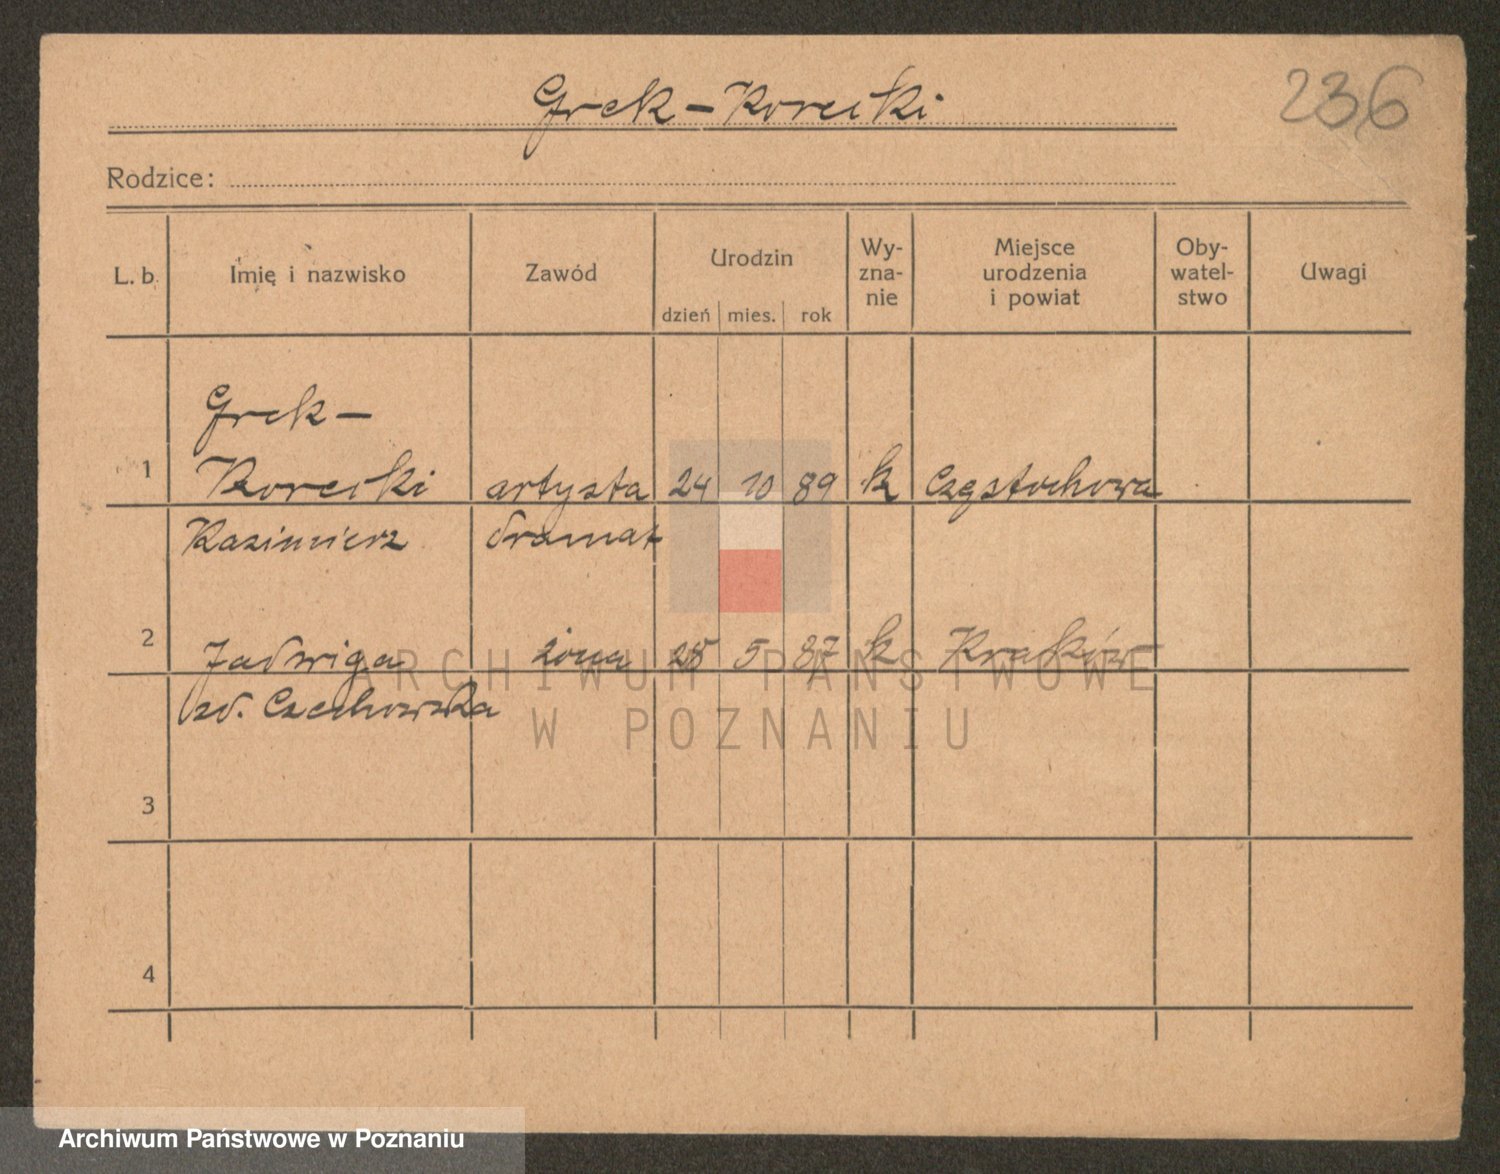 Grek-Korecki
236
Rodzice:
L. b.
Imię i nazwisko
Zawód
Urodzin
dzień mies. rok
Wy-
zna-
nie
Miejsce
urodzenia
i powiat
Oby-
watel-
stwo
Uwagi
Grek-
1 Korecki artysta 24 10 89 k Częstochowa
Kazimierz dramat
2 Jadwiga żona 25 5 87 k Kraków
zd. Czechowska
3
4
ARCHIWUM PAŃSTWOWE
W POZNANIU
Archiwum Państwowe w Poznaniu